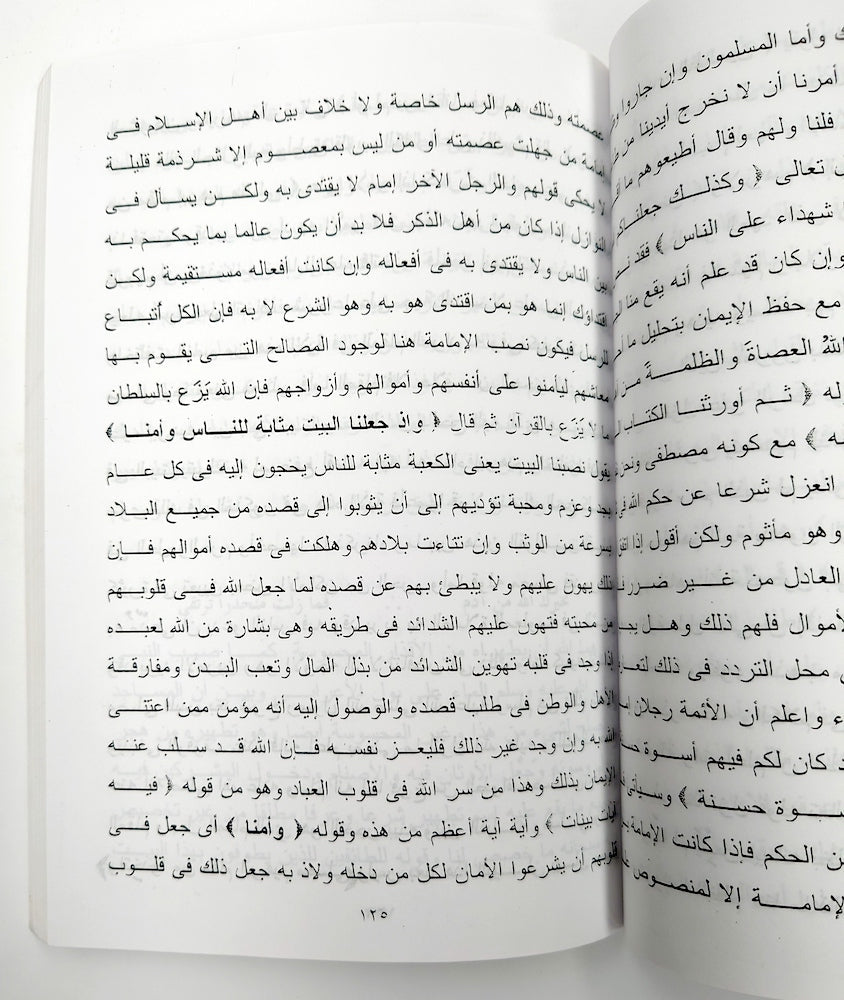 ك وأما المسلمون وإن جاروا
أمرنا أن لا نخرج أيدينا من
فلنا ولهم وقال أطيعوهم ما
تعالى ﴿ وكذلك جعلناكم
شهداء على الناس ﴾ فقد
وإن كان قد علم أنه يقع منا
مع حفظ الإيمان بتحليل ما
الله العصاة والظلمة من
له ﴿ ثم أورثنا الكتاب
ه ﴾ مع كونه مصطفى ونحن
انعزل شرعا عن حكم الله فى
وهو مأثوم ولكن أقول إذا اتفق
العادل من غير ضرر
لأموال فلهم ذلك وهل
محل التردد فى ذلك
ء واعلم أن الأئمة رجلان
د كان لكم فيهم أسوة
سوة حسنة ﴾ وسيأتى
ن الحكم فإذا كانت الإمامة
لإمامة إلا لمنصوص
عصمته وذلك هم الرسل خاصة ولا خلاف بين أهل الإسلام فى
إمامة من جهلت عصمته أو من ليس بمعصوم إلا شرذمة قليلة
لا يحكى قولهم والرجل الأخر إمام لا يقتدى به ولكن يسأل فى
النوازل إذا كان من أهل الذكر فلا بد أن يكون عالما بما يحكم به
بين الناس ولا يقتدى به فى أفعاله وإن كانت أفعاله مستقيمة ولكن
اقتداؤك إنما هو بمن اقتدى هو به وهو الشرع لا به فإن الكل أتباع
للرسل فيكون نصب الإمامة هنا لوجود المصالح التى يقوم بها
معاشهم ليأمنوا على أنفسهم وأموالهم وأزواجهم فإن الله يَزَع بالسلطان
ما لا يَزَع بالقرآن ثم قال ﴿ وإذ جعلنا البيت مثابة للناس وأمنا ﴾
يقول نصبنا البيت يعنى الكعبة مثابة للناس يحجون إليه فى كل عام
بجد وعزم ومحبة تؤديهم إلى أن يثوبوا إلى قصده من جميع البلاد
بسرعة من الوثب وإن تناءت بلادهم وهلكت فى قصده أموالهم فإن
ذلك يهون عليهم ولا يبطئ بهم عن قصده لما جعل الله فى قلوبهم
من محبته فتهون عليهم الشدائد فى طريقه وهى بشارة من الله لعبده
إذا وجد فى قلبه تهوين الشدائد من بذل المال وتعب البدن ومفارقة
الأهل والوطن فى طلب قصده والوصول إليه أنه مؤمن ممن اعتنى
الله به وإن وجد غير ذلك فليعز نفسه فإن الله قد سلب عنه
الإيمان بذلك وهذا من سر الله فى قلوب العباد وهو من قوله ﴿ فيه
آيات بينات ﴾ وأية آية أعظم من هذه وقوله ﴿ وأمنا ﴾ أى جعل فى
قلوبهم أن يشرعوا الأمان لكل من دخله ولاذ به جعل ذلك فى قلوب
١٢٥